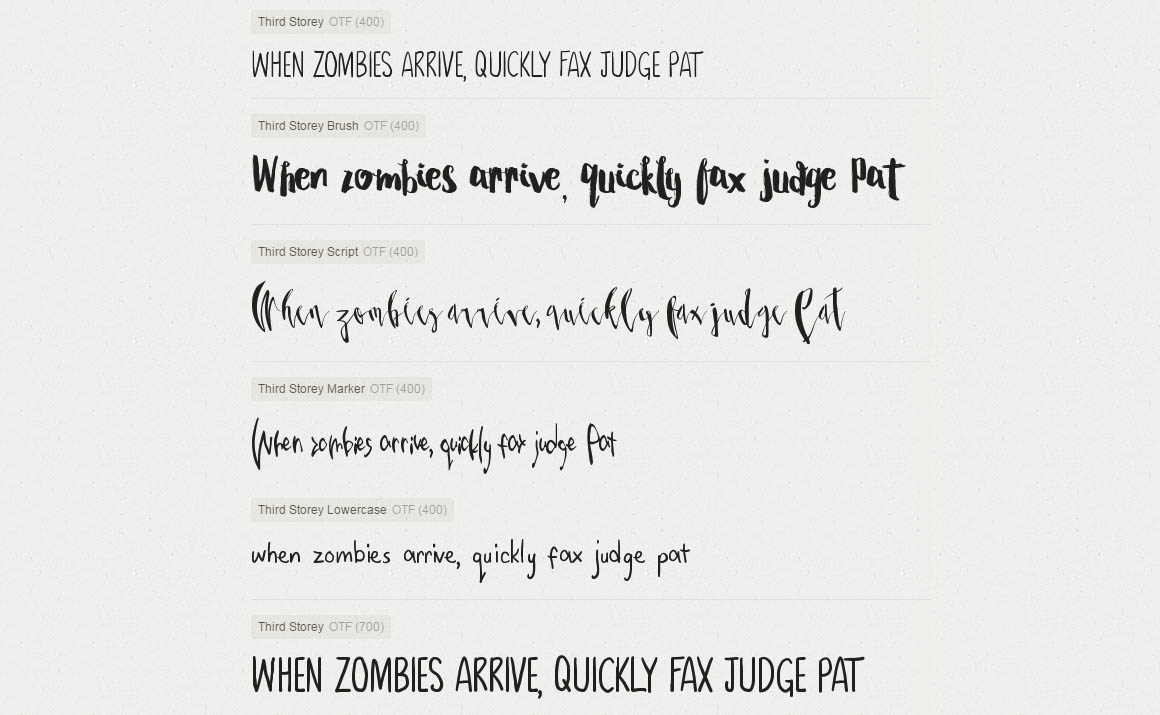 Third Storey OTF (400)
WHEN ZOMBIES ARRIVE, QUICKLY FAX JUDGE PAT
Third Storey Brush OTF (400)
When zombies arrive, quickly fax judge Pat
Third Storey Script OTF (400)
When zombies arrive, quickly fax judge Pat
Third Storey Marker OTF (400)
When zombies arrive, quickly fax judge Pat
Third Storey Lowercase OTF (400)
when zombies arrive, quickly fax judge pat
Third Storey OTF (700)
WHEN ZOMBIES ARRIVE, QUICKLY FAX JUDGE PAT